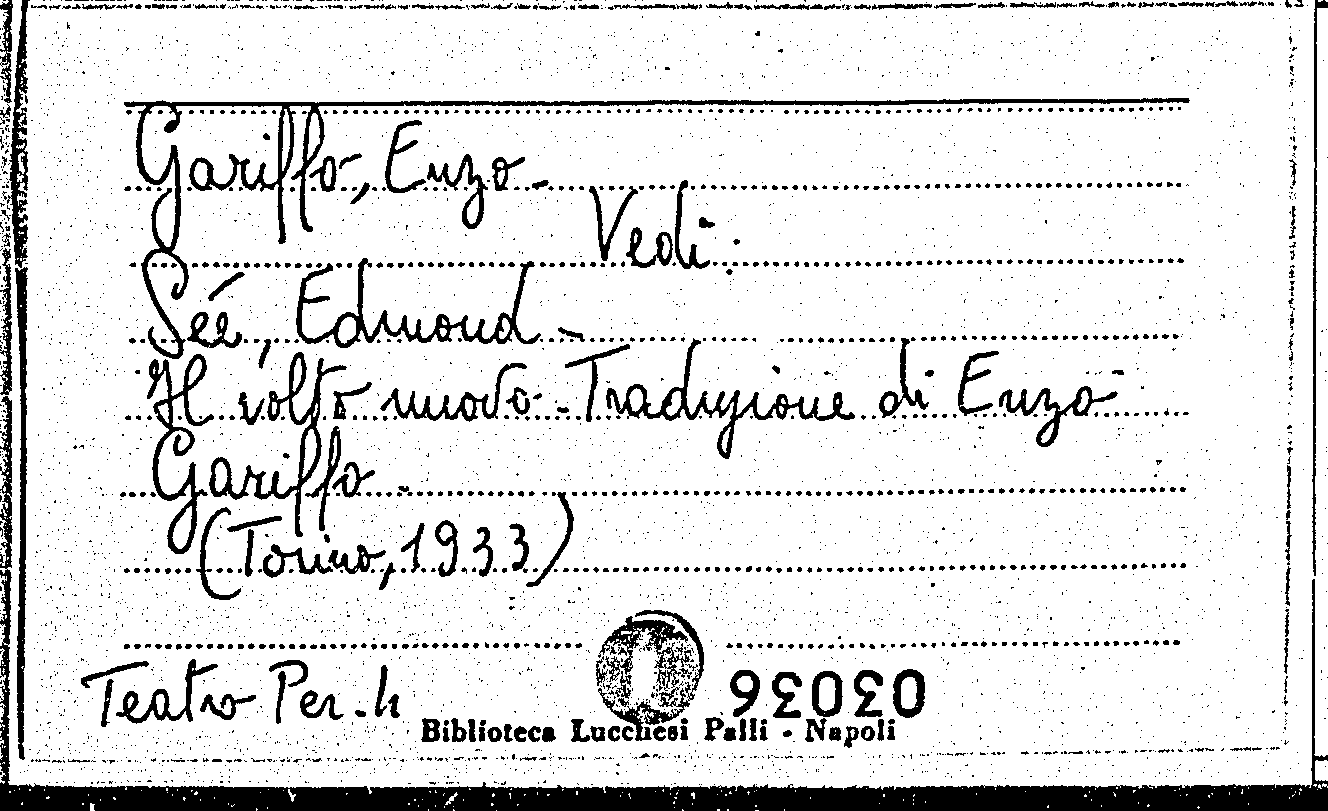 Gariffo, Enzo -
Vedi:
Sée, Edmond -
Il volto nuovo - Traduzione di Enzo
Gariffo -
(Torino, 1933)
Teatro Per. h
93030
Biblioteca Lucchesi Palli - Napoli